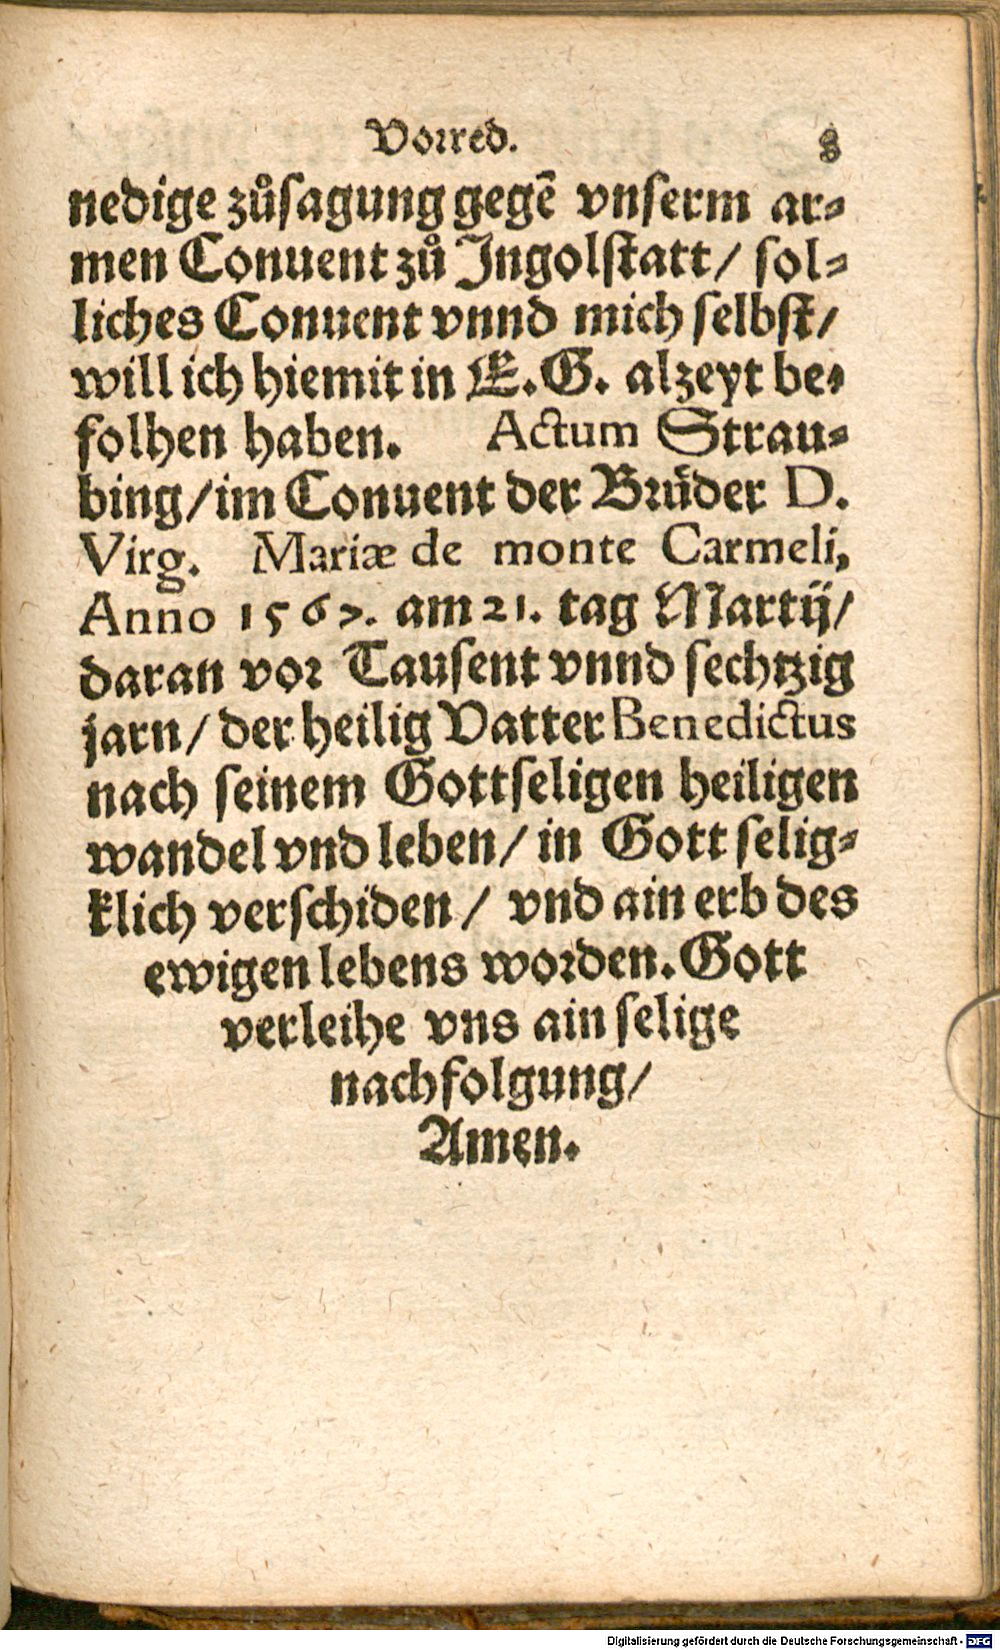 Vorred. 8
nedige zůsagung gegē vnserm ar⸗
men Conuent zů Ingolstatt/ sol⸗
liches Conuent vnnd mich selbst/
will ich hiemit in E.G. alzeyt be⸗
folhen haben. Actum Strau⸗
bing/ im Conuent der Brüder D.
Virg. Mariæ de monte Carmeli,
Anno 1567. am 21. tag Martij/
daran vor Tausent vnnd sechtzig
jarn/ der heilig Vatter Benedictus
nach seinem Gottseligen heiligen
wandel vnd leben/ in Gott selig⸗
klich verschiden/ vnd ain erb des
ewigen lebens worden. Gott
verleihe vns ain selige
nachfolgung/
Amen.
Digitalisierung gefördert durch die Deutsche Forschungsgemeinschaft - DFG